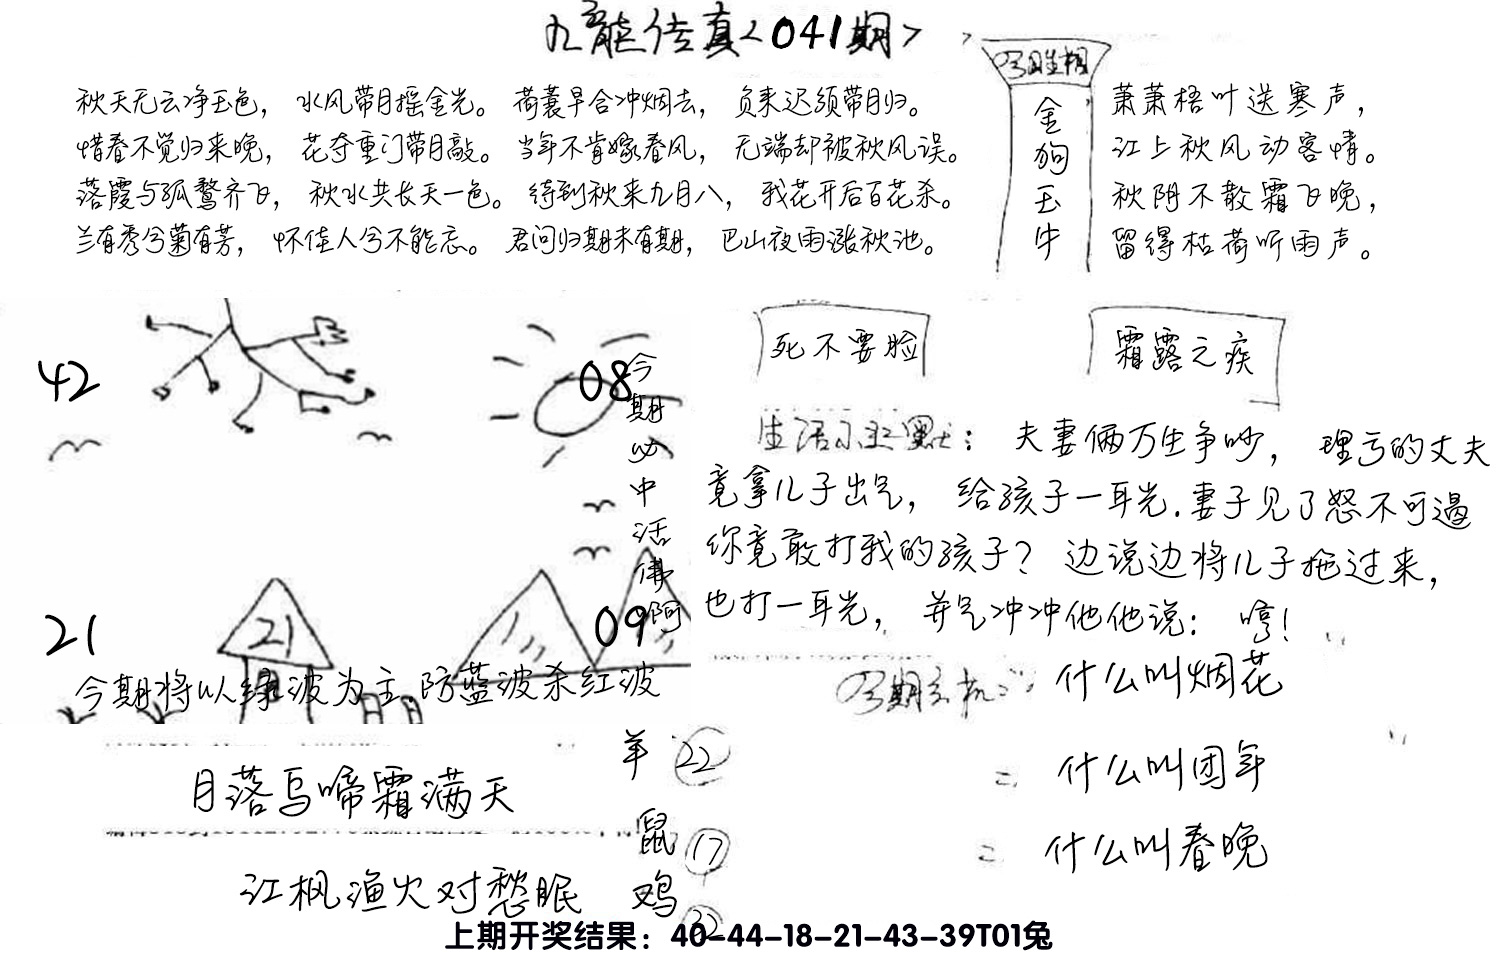 九龙传真<041期>
今期生相
金狗玉牛
秋天无云净玉色，水风带月摇金光。荷蓑早合冲烟去，负耒迟须带月归。
惜春不觉归来晚，花夺重门带月敲。当年不肯嫁春风，无端却被秋风误。
落霞与孤鹜齐飞，秋水共长天一色。待到秋来九月八，我花开后百花杀。
兰有秀兮菊有芳，怀佳人兮不能忘。君问归期未有期，巴山夜雨涨秋池。
萧萧梧叶送寒声，
江上秋风动客情。
秋阴不散霜飞晚，
留得枯荷听雨声。
42
08
今期必中活佛啊
21
21
09
今期将以绿波为主防蓝波杀红波
死不要脸
霜露之疾
生活小幽默：夫妻俩万生争吵，理亏的丈夫
竟拿儿子出气，给孩子一耳光.妻子见了怒不可遏
你竟敢打我的孩子？边说边将儿子拖过来，
也打一耳光，并气冲冲他他说：哼！
今期玄机
什么叫烟花
二
什么叫团年
二
什么叫春晚
月落乌啼霜满天
江枫渔火对愁眠
羊 22
鼠 17
鸡 32
上期开奖结果：40-44-18-21-43-39T01兔